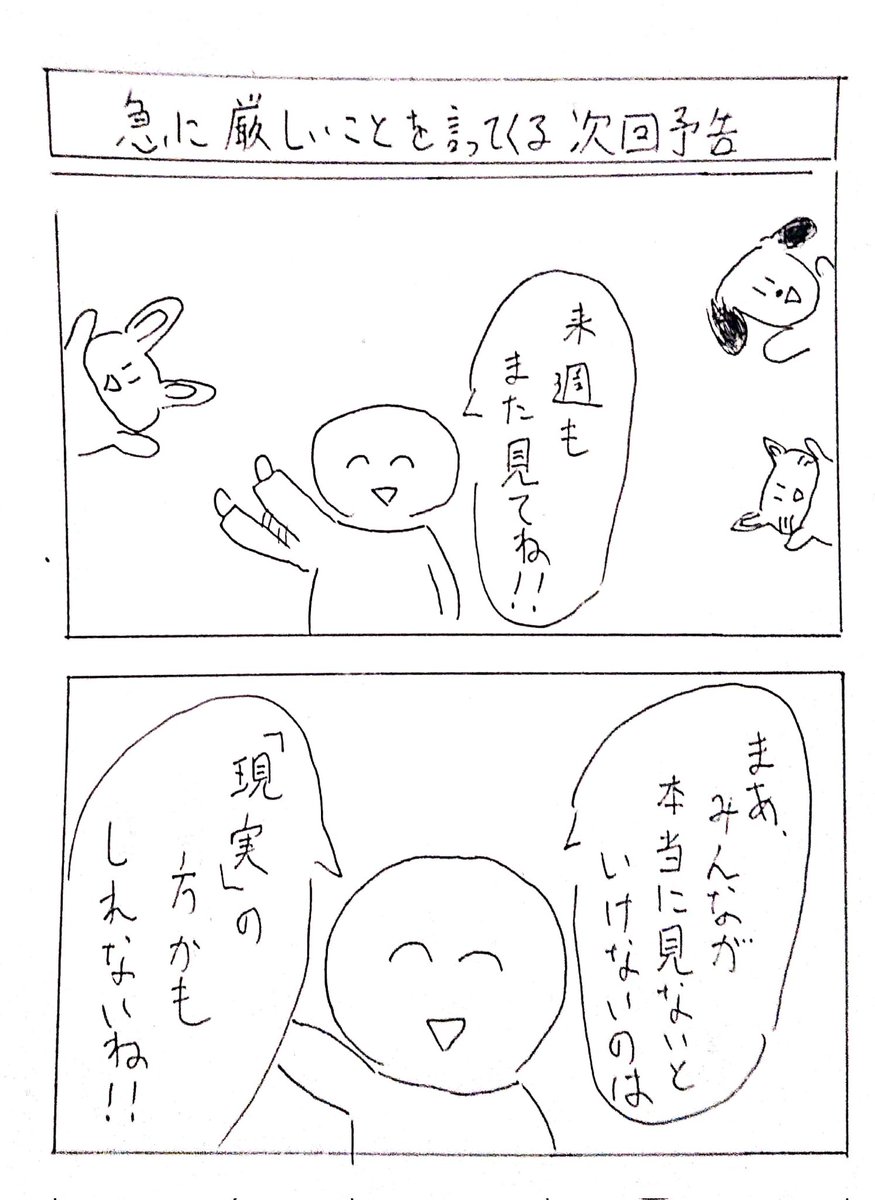 急に厳しいことを言ってくる次回予告
来週も
また見てね!!
まあ、
みんなが
本当に見ないと
いけないのは
「現実」の
方かも
しれないね!!